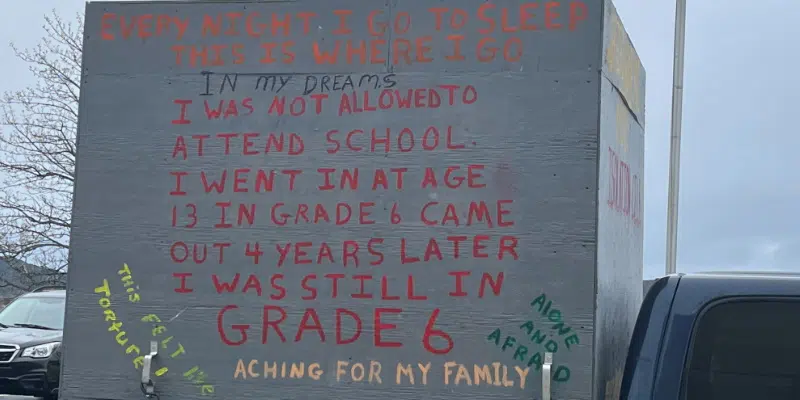 EVERY NIGHT I GO TO SLEEP
THIS IS WHERE I GO
IN MY DREAMS
I WAS NOT ALLOWED TO
ATTEND SCHOOL.
I WENT IN AT AGE
13 IN GRADE 6 CAME
OUT 4 YEARS LATER
I WAS STILL IN
GRADE 6
ACHING FOR MY FAMILY
THIS FELT LIKE
TORTURE!
ALONE
AND
AFRAID